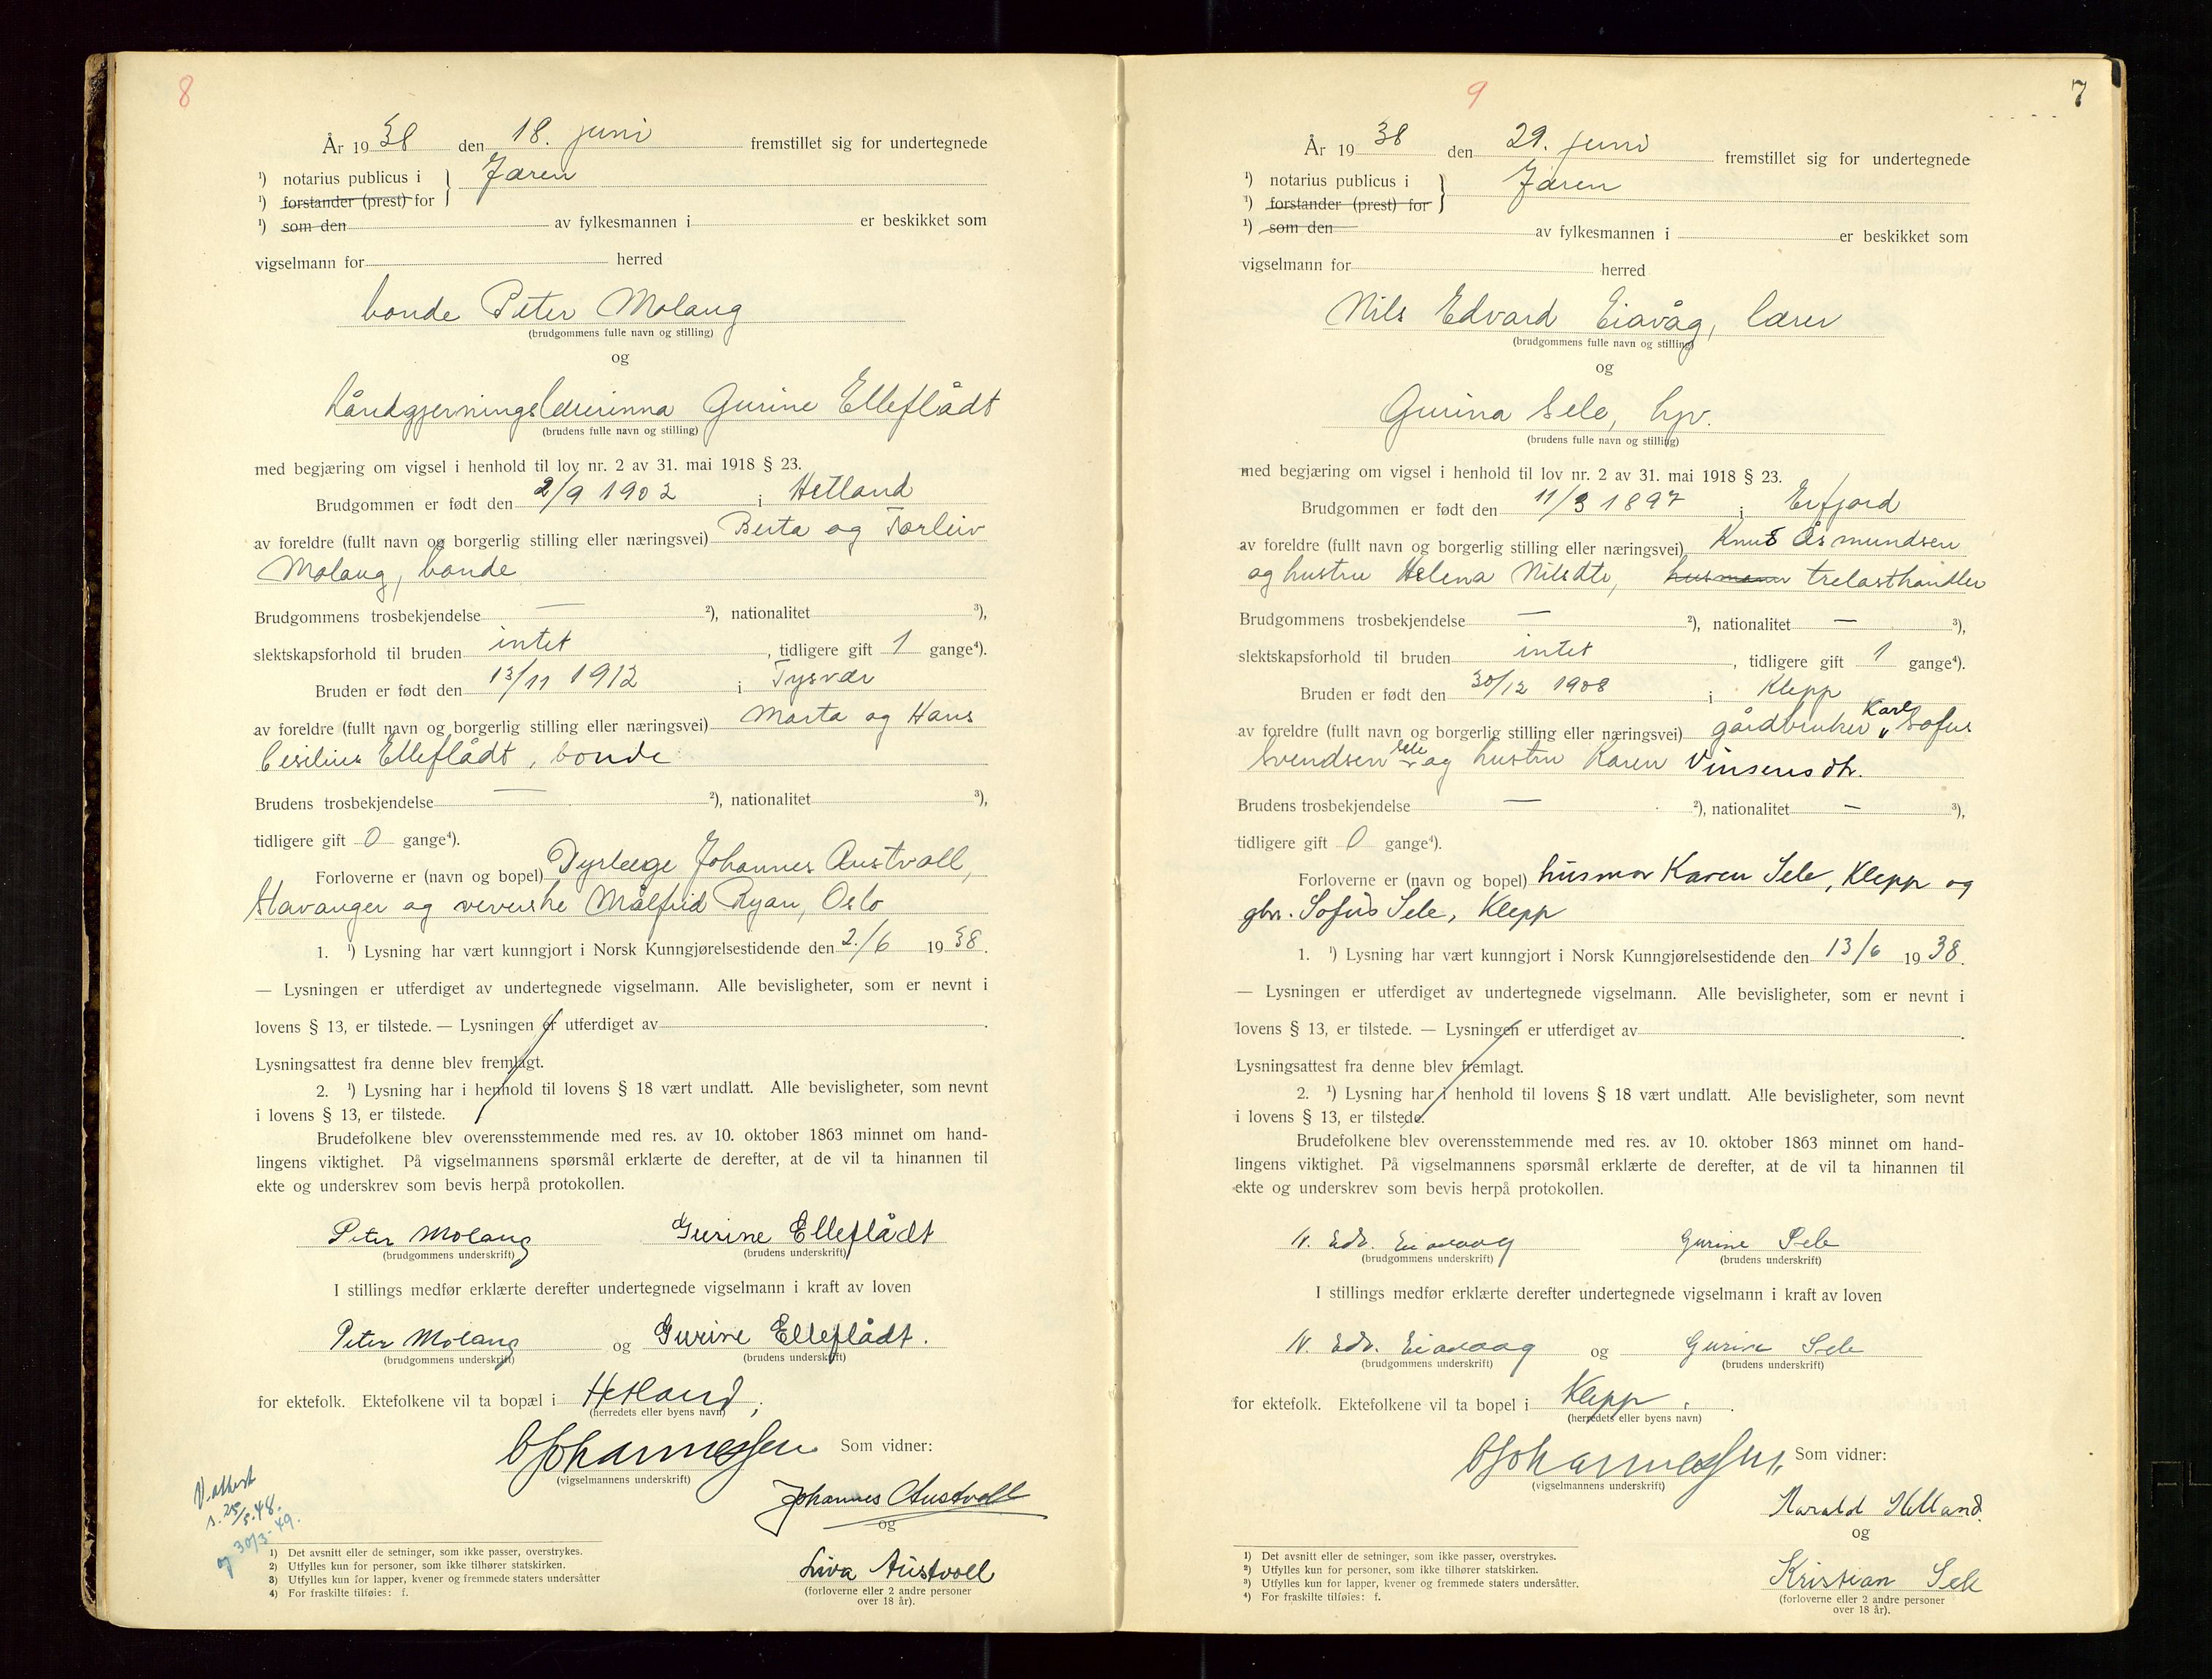 8
År 19 38 den 18. juni fremstillet sig for undertegnede
¹) notarius publicus i } Jæren
¹) forstander (prest) for
¹) som den av fylkesmannen i er beskikket som
vigselmann for herred
bonde Peter Molaug
(brudgommens fulle navn og stilling)
og
håndgjerningslærerinna Gurine Elleflådt
(brudens fulle navn og stilling)
med begjæring om vigsel i henhold til lov nr. 2 av 31. mai 1918 § 23.
Brudgommen er født den 2/9 1902 i Hetland
av foreldre (fullt navn og borgerlig stilling eller næringsvei) Berta og Torleiv
Molaug, bonde
Brudgommens trosbekjendelse — ²), nationalitet ³),
slektskapsforhold til bruden intet, tidligere gift 1 gange⁴).
Bruden er født den 13/11 1912 i Tysvær
av foreldre (fullt navn og borgerlig stilling eller næringsvei) Marta og Hans
Cesilius Elleflådt, bonde
Brudens trosbekjendelse — ²), nationalitet ³),
tidligere gift 0 gange⁴).
Forloverne er (navn og bopel) Dyrlæge Johannes Austvoll,
Stavanger og veverske Målfrid Ryan, Oslo
1. ¹) Lysning har vært kunngjort i Norsk Kunngjørelsestidende den 2./6 19 38.
— Lysningen er utferdiget av undertegnede vigselmann. Alle bevisligheter, som er nevnt i
lovens § 13, er tilstede. — Lysningen er utferdiget av .
Lysningsattest fra denne blev fremlagt.
2. ¹) Lysning har i henhold til lovens § 18 vært undlatt. Alle bevisligheter, som nevnt
i lovens § 13, er tilstede.
Brudefolkene blev overensstemmende med res. av 10. oktober 1863 minnet om hand-
lingens viktighet. På vigselmannens spørsmål erklærte de derefter, at de vil ta hinannen til
ekte og underskrev som bevis herpå protokollen.
Peter Molaug Gurine Elleflådt
(brudgommens underskrift) (brudens underskrift)
I stillings medfør erklærte derefter undertegnede vigselmann i kraft av loven
Peter Molaug og Gurine Elleflådt.
(brudgommens underskrift) (brudens underskrift)
for ektefolk. Ektefolkene vil ta bopæl i Hetland.
(herredets eller byens navn)
Johannessen Som vidner:
(vigselmannens underskrift)
Johannes Austvoll
og
Liva Austvoll
(forloverne eller 2 andre personer
over 18 år).
V.attest
s. 25/5.48.
og 30/3-49.
1) Det avsnitt eller de setninger, som ikke passer, overstrykes.
2) Utfylles kun for personer, som ikke tilhører statskirken.
3) Utfylles kun for lapper, kvener og fremmede staters undersåtter
4) For fraskilte tilføies: f.
9
7
År 19 38 den 29. juni fremstillet sig for undertegnede
¹) notarius publicus i } Jæren
¹) forstander (prest) for
¹) som den av fylkesmannen i er beskikket som
vigselmann for herred
Nils Edvard Eiavåg, lærer
(brudgommens fulle navn og stilling)
og
Gurina Sele, hpv.
(brudens fulle navn og stilling)
med begjæring om vigsel i henhold til lov nr. 2 av 31. mai 1918 § 23.
Brudgommen er født den 11/3 1897 i Erfjord
av foreldre (fullt navn og borgerlig stilling eller næringsvei) Knut Åsmundsen
og hustru Helena Nilsdtr, husmann trelasthandler
Brudgommens trosbekjendelse — ²), nationalitet — ³),
slektskapsforhold til bruden intet, tidligere gift 1 gange⁴).
Bruden er født den 30/12 1908 i Klepp
av foreldre (fullt navn og borgerlig stilling eller næringsvei) gårdbruker Karl Sofus
Svendsen Sele og hustru Karen Vinsensdtr.
Brudens trosbekjendelse — ²), nationalitet — ³),
tidligere gift 0 gange⁴).
Forloverne er (navn og bopel) husmor Karen Sele, Klepp og
gbr. Sofus Sele, Klepp
1. ¹) Lysning har vært kunngjort i Norsk Kunngjørelsestidende den 13/6 19 38.
— Lysningen er utferdiget av undertegnede vigselmann. Alle bevisligheter, som er nevnt i
lovens § 13, er tilstede. — Lysningen er utferdiget av .
Lysningsattest fra denne blev fremlagt.
2. ¹) Lysning har i henhold til lovens § 18 vært undlatt. Alle bevisligheter, som nevnt
i lovens § 13, er tilstede.
Brudefolkene blev overensstemmende med res. av 10. oktober 1863 minnet om hand-
lingens viktighet. På vigselmannens spørsmål erklærte de derefter, at de vil ta hinannen til
ekte og underskrev som bevis herpå protokollen.
N. Edv. Eiavaag Gurine Sele
(brudgommens underskrift) (brudens underskrift)
I stillings medfør erklærte derefter undertegnede vigselmann i kraft av loven
N. Edv. Eiavaag og Gurine Sele
(brudgommens underskrift) (brudens underskrift)
for ektefolk. Ektefolkene vil ta bopel i Klepp.
(herredets eller byens navn)
Johannessen Som vidner:
(vigselmannens underskrift)
Harald Helland.
og
Kristian Sele
(forloverne eller 2 andre personer
over 18 år).
1) Det avsnitt eller de setninger, som ikke passer, overstrykes.
2) Utfylles kun for personer, som ikke tilhører statskirken.
3) Utfylles kun for lapper, kvener og fremmede staters undersåtter.
4) For fraskilte tilføies: f.